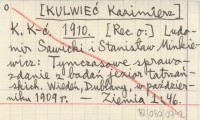 [KULWIEĆ Kazimierz]
K. K-ć. 1910. [Rec o:] Ludo-
mir Sawicki i Stanisław Minkie-
wicz: Tymczasowe sprawo-
zdanie z badań jezior tatrzań-
skich. Wiedeń, Dublany, w paździer-
niku 1909 r. — Ziemia 1:46.